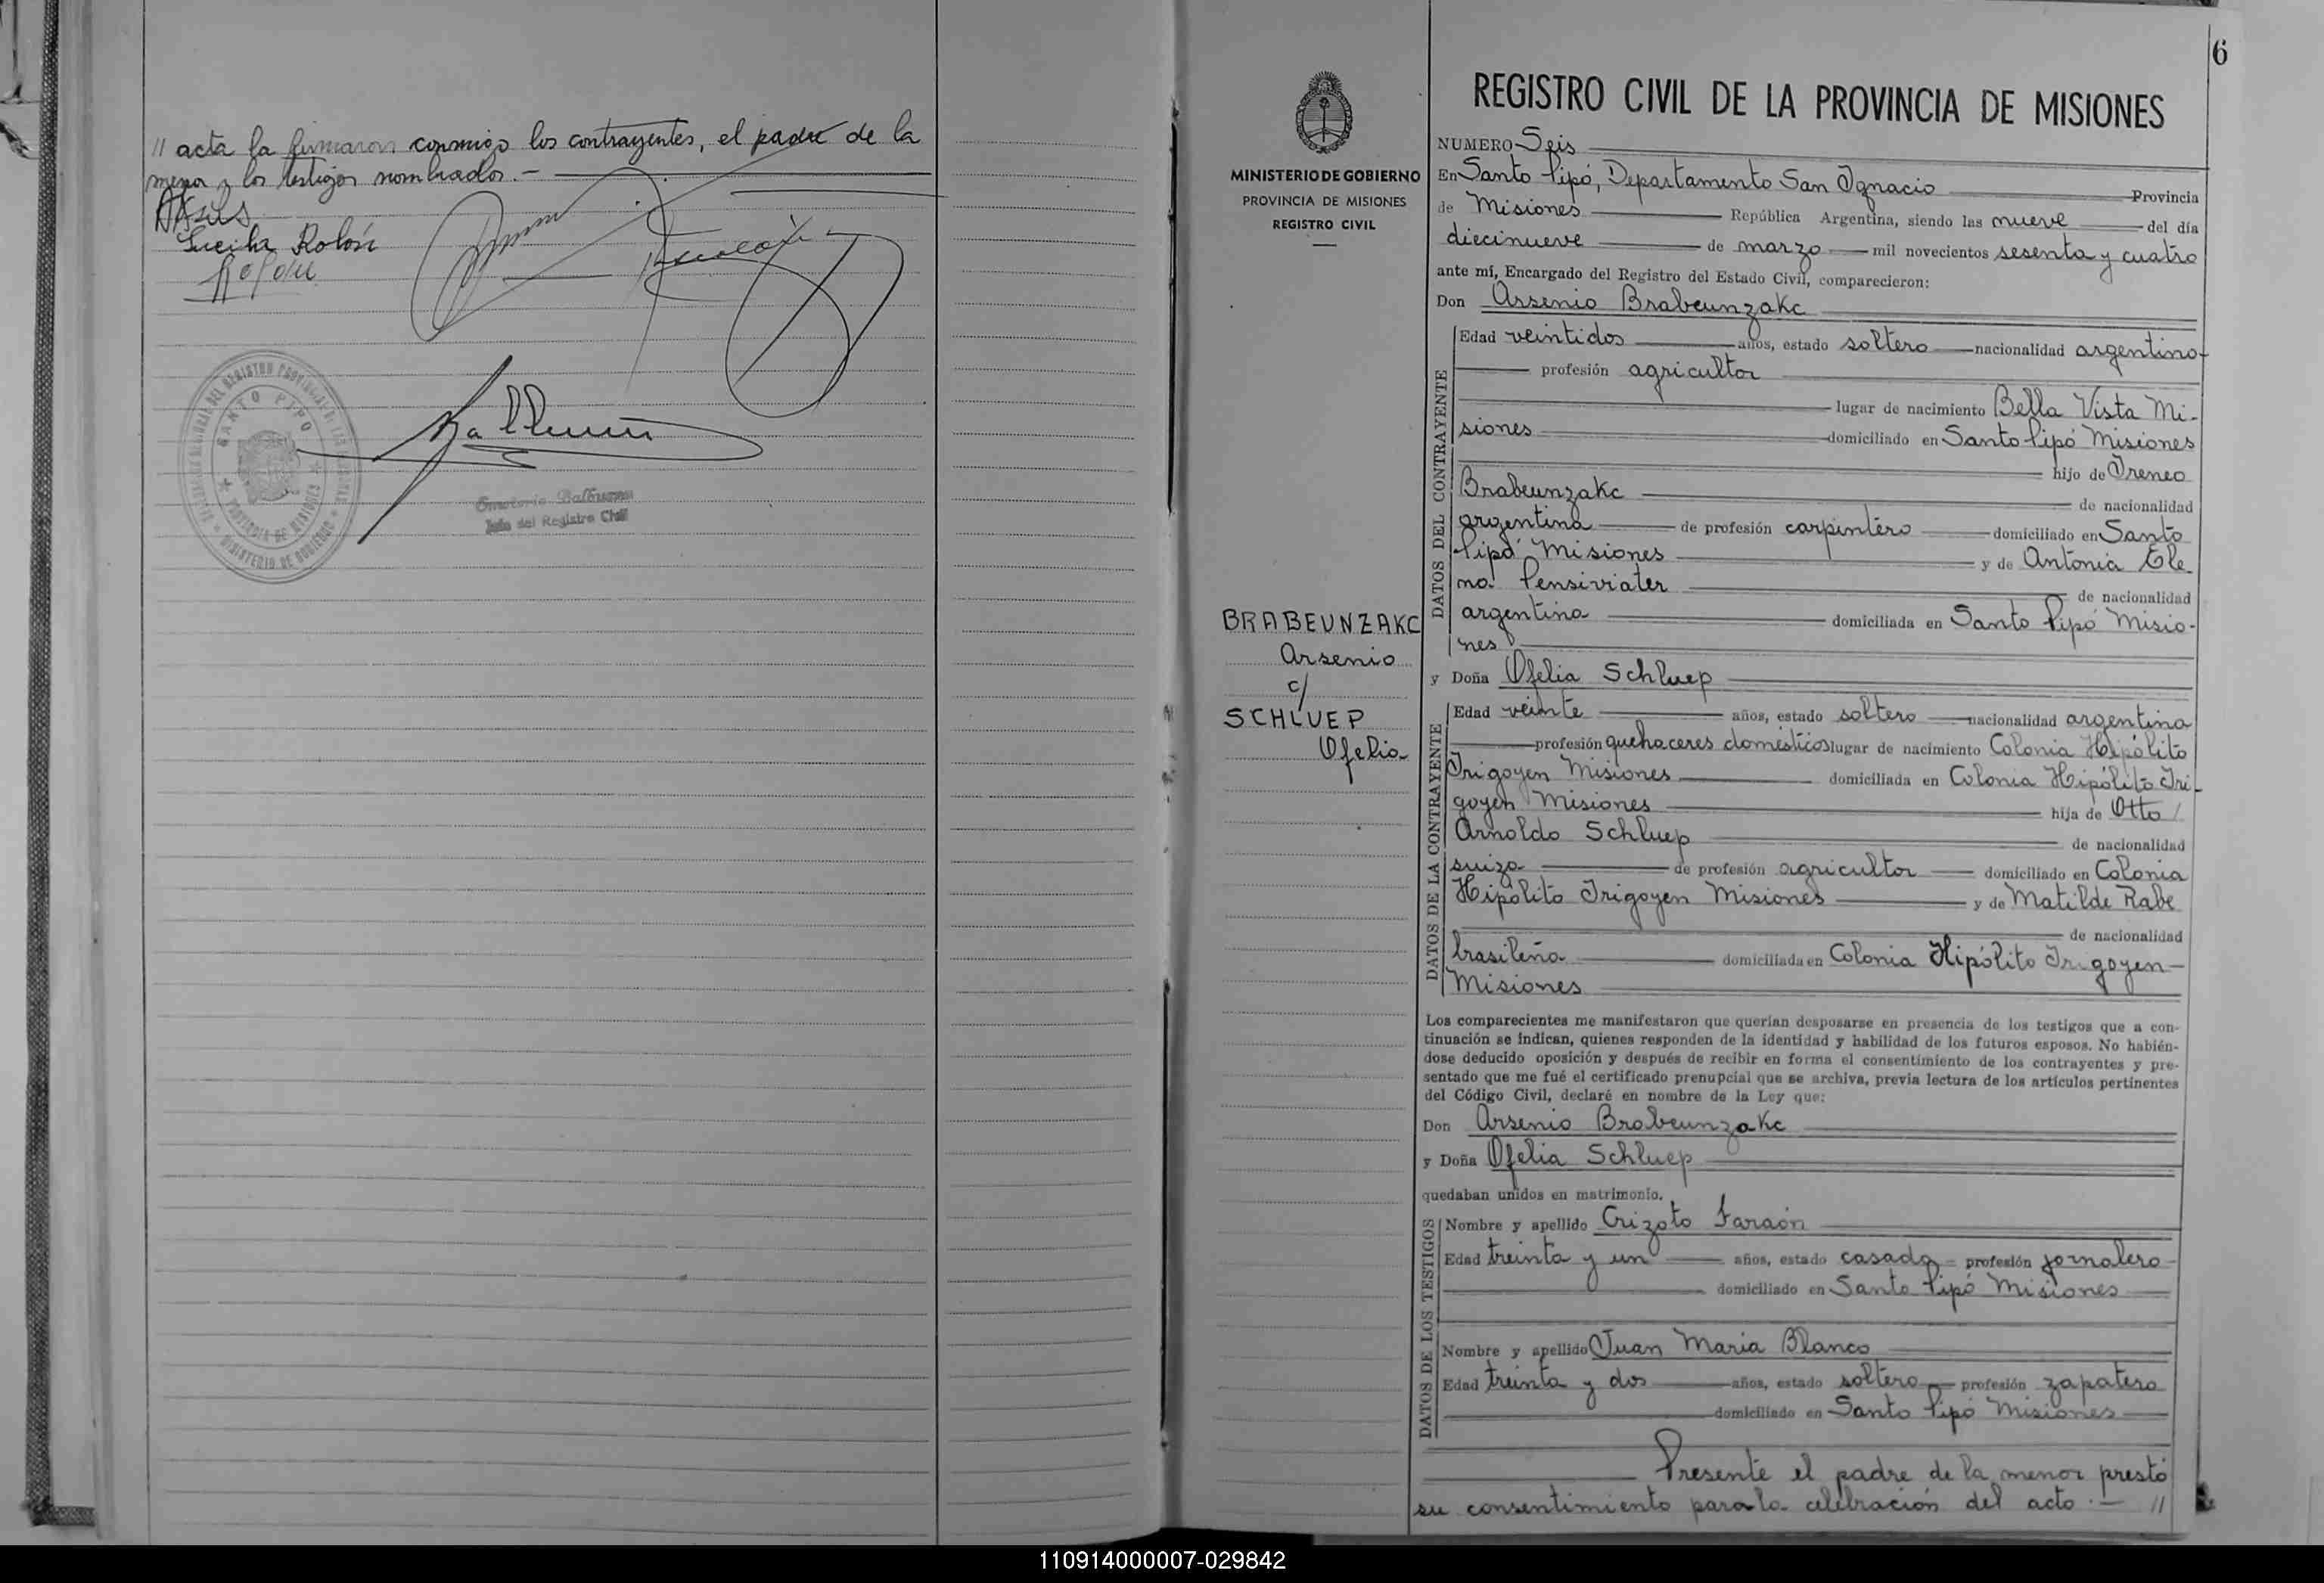 // acta la firmaron conmigo los contrayentes, el padre de la
menor y los testigos nombrados. -
Lucila Rolón
Rolón
SANTO PIPO
PROVINCIA DE MISIONES
MINISTERIO DE GOBIERNO
Balbuena
Jefe del Registro Civil
6
MINISTERIO DE GOBIERNO
PROVINCIA DE MISIONES
REGISTRO CIVIL
BRABEUNZAKC
Arsenio
c/
SCHLUEP
Ofelia
REGISTRO CIVIL DE LA PROVINCIA DE MISIONES
NUMERO Seis
En Santo Pipó, Departamento San Ignacio Provincia
de Misiones República Argentina, siendo las nueve del día
diecinueve de marzo mil novecientos sesenta y cuatro
ante mí, Encargado del Registro del Estado Civil, comparecieron:
Don Arsenio Brabeunzakc
DATOS DEL CONTRAYENTE
Edad veintidos años, estado soltero nacionalidad argentino
profesión agricultor
lugar de nacimiento Bella Vista Mi-
siones domiciliado en Santo Pipó Misiones
hijo de Ireneo
Brabeunzakc de nacionalidad
argentina de profesión carpintero domiciliado en Santo
Pipó Misiones y de Antonia Ele
na Pensiviater de nacionalidad
argentina domiciliada en Santo Pipó Misio-
nes
y Doña Ofelia Schluep
DATOS DE LA CONTRAYENTE
Edad veinte años, estado soltero nacionalidad argentina
profesión quehaceres domésticos lugar de nacimiento Colonia Hipólito
Irigoyen Misiones domiciliada en Colonia Hipólito Iri-
goyen Misiones hija de Otto /
Arnoldo Schluep de nacionalidad
suiza de profesión agricultor domiciliado en Colonia
Hipólito Irigoyen Misiones y de Matilde Rabe
de nacionalidad
brasileña domiciliada en Colonia Hipólito Irigoyen
Misiones
Los comparecientes me manifestaron que querían desposarse en presencia de los testigos que a con-
tinuación se indican, quienes responden de la identidad y habilidad de los futuros esposos. No habién-
dose deducido oposición y después de recibir en forma el consentimiento de los contrayentes y pre-
sentado que me fué el certificado prenupcial que se archiva, previa lectura de los artículos pertinentes
del Código Civil, declaré en nombre de la Ley que:
Don Arsenio Brabeunzakc
y Doña Ofelia Schluep
quedaban unidos en matrimonio.
DATOS DE LOS TESTIGOS
Nombre y apellido Crizoto Faraón
Edad treinta y un años, estado casado profesión jornalero
domiciliado en Santo Pipó Misiones
Nombre y apellido Juan Maria Blanco
Edad treinta y dos años, estado soltero profesión zapatero
domiciliado en Santo Pipó Misiones
Presente el padre de la menor prestó
su consentimiento para la celebración del acto. - //
110914000007-029842